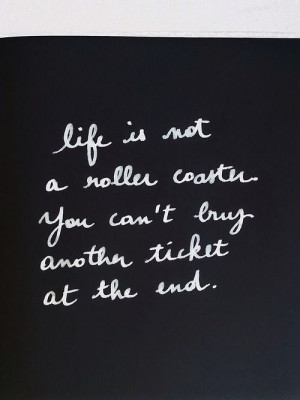 life is not
a roller coaster.
You can't buy
another ticket
at the end.